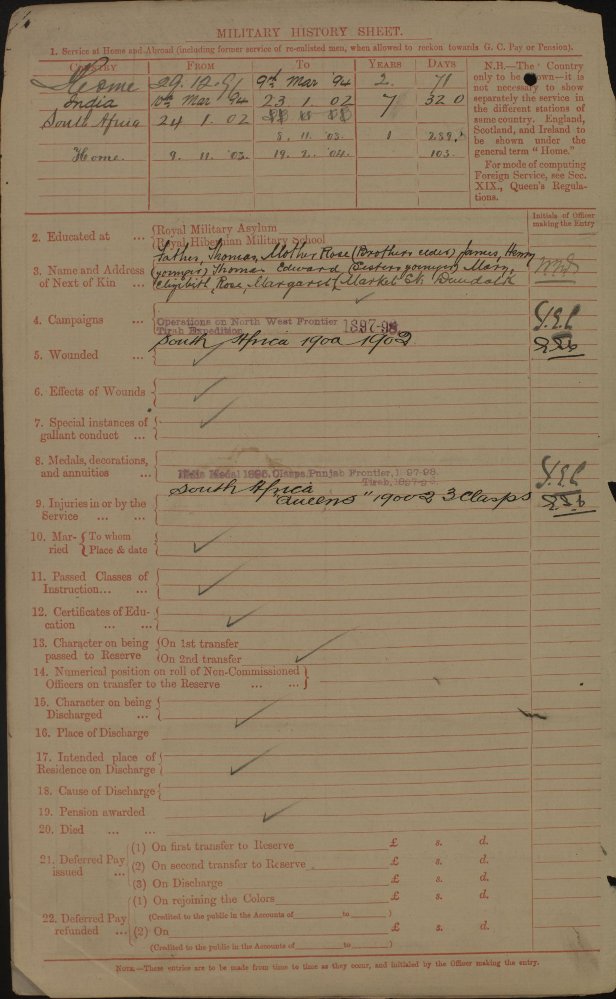 MILITARY HISTORY SHEET.
1. Service at Home and Abroad (including former service of re-enlisted men, when allowed to reckon towards G. C. Pay or Pension).
COUNTRY FROM TO YEARS DAYS
Home 29. 12. 91 9th Mar 94 2 71
India 10th Mar 94 23 1. 02 7 320
South Africa 24 1. 02
8. 11. 03. 1 289
Home. 9. 11. 03. 19. 2. 04. 103
N.B.—The Country
only to be shown—it is
not necessary to show
separately the service in
the different stations of
same country. England,
Scotland, and Ireland to
be shown under the
general term "Home."
For mode of computing
Foreign Service, see Sec.
XIX., Queen's Regula-
tions.
Initials of Officer
making the Entry
2. Educated at ... Royal Military Asylum
Royal Hibernian Military School
Father, Thomas, Mother Rose (Brothers elder) James, Henry
3. Name and Address (younger) Thomas Edward (Sisters younger) Mary,
of Next of Kin ... Elizibith, Rose, Margaret, Market St. Dundalk
4. Campaigns ... Operations on North West Frontier 1897-98
Tirah Expedition
South Africa 1900 1902
5. Wounded ...
6. Effects of Wounds
7. Special instances of
gallant conduct ...
8. Medals, decorations,
and annuities ... India Medal 1895, Clasps, Punjab Frontier, 1897-98.
Tirah, 1897-98.
South Africa
Queens" 1900-2 3 Clasps
9. Injuries in or by the
Service ... ...
10. Mar- To whom
ried Place & date
11. Passed Classes of
Instruction... ...
12. Certificates of Edu-
cation ... ...
13. Character on being On 1st transfer
passed to Reserve On 2nd transfer
14. Numerical position on roll of Non-Commissioned
Officers on transfer to the Reserve ... ...
15. Character on being
Discharged ...
16. Place of Discharge
17. Intended place of
Residence on Discharge
18. Cause of Discharge
19. Pension awarded
20. Died ... ...
21. Deferred Pay
issued ...
(1) On first transfer to Reserve £ s. d.
(2) On second transfer to Reserve £ s. d.
(3) On Discharge £ s. d.
22. Deferred Pay
refunded ...
(1) On rejoining the Colors £ s. d.
(Credited to the public in the Accounts of to )
(2) On £ s. d.
(Credited to the public in the Accounts of to )
NOTE.—These entries are to be made from time to time as they occur, and initialed by the Officer making the entry.